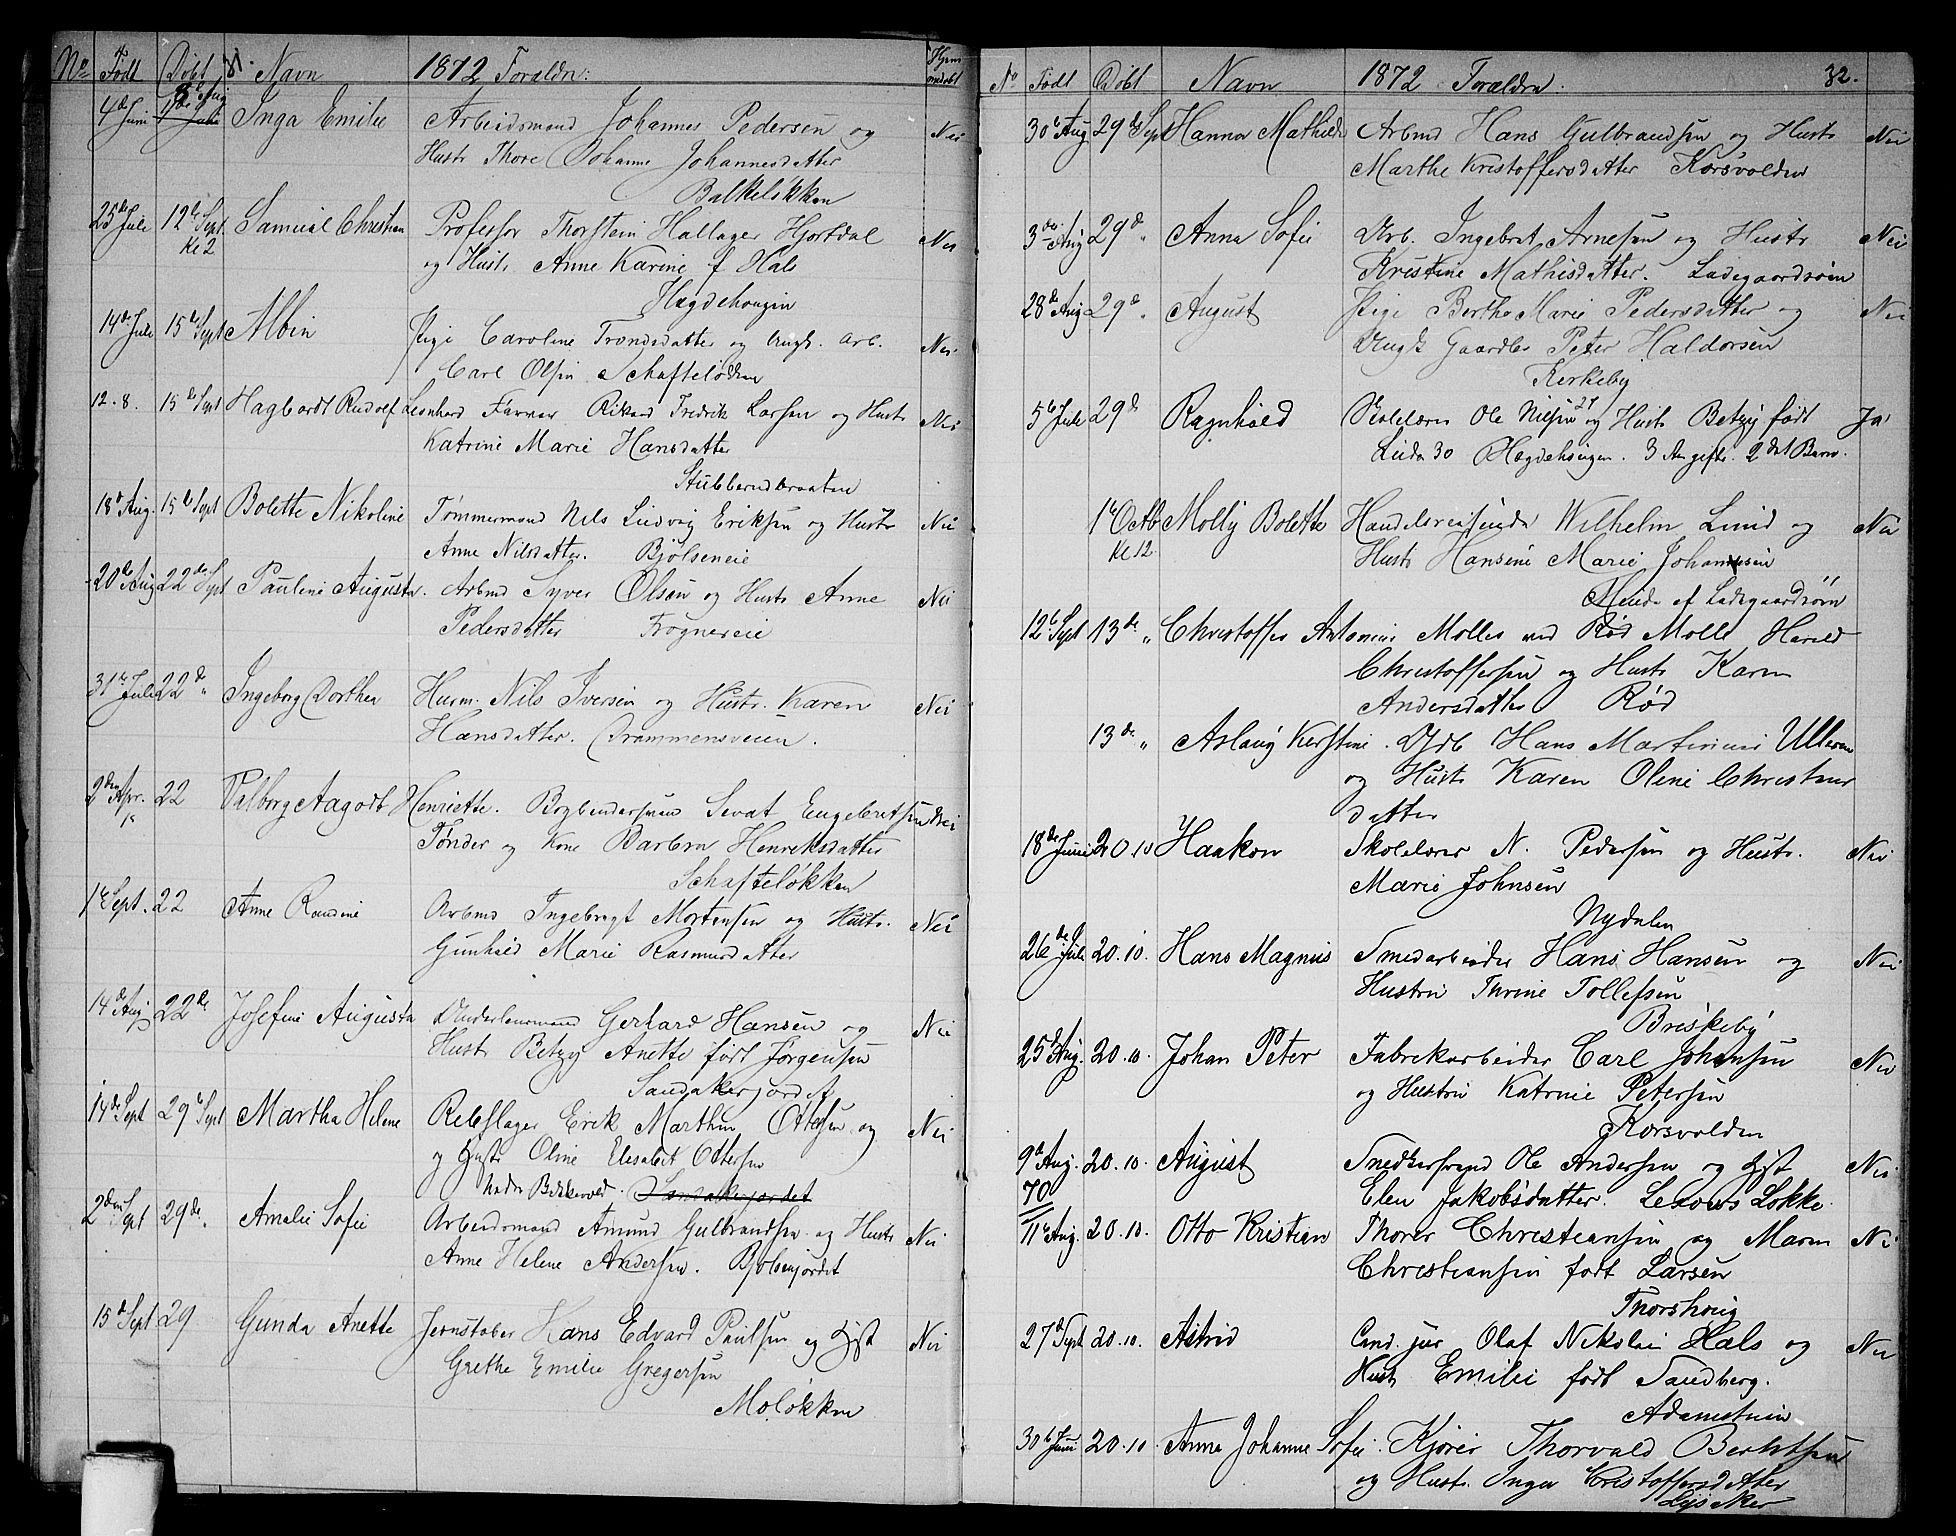 No Født Døbt 31. Navn 1872 Forældre: Hjem medøbt
4de Juni 8de Aug 1de Juli Inga Emilie Arbeidsmand Johannes Pedersen og Nei
Hustr Thore Johanne Johannesdatter
Balkeløkken
25de Juli 12te Sept. Samuel Christian Professor Thorstein Hallager Hjortdal Nei
Kl 2 og Hustr Anne Karine f Hals
Hægdehougen
14de Juli 15de Sept Albin Pige Caroline Trondsdatter og Ungk. arb. Nei
Carl Olsen Schafteløkken
12.8. 15de Sept Hagbardt Rudolf Leonhard Farver Rikard Fredrik Larsen og Hustr Nei
Katrine Marie Hansdatter
Stubberudbraaten
18de Aug. 15de Sept Bolette Nikoline Tømmermand Nils Ludvig Eriksen og Hustr Nei
Anne Nilsdatter. Bjølseneie
20de Aug 22de Sept Pauline Augusta. Arbmd Syver Olsen og Hustr Anne Nei
Pedersdatter Frognereie
31te Juli 22de " Ingeborg Dorthea Husm. Nils Iversen og Hustr. Karen Nei
Hansdatter. Drammensveien.
2den Apr. 22 Valborg Aagodt Henriette. Bogbindersvend Sevat Engebretsen Nei
Tønder og Kone Barbra Henriksdatter
Schafteløkken
1te Sept. 22 Anne Randine Arbmd Ingebregt Mortensen og Hustr. Nei
Gunhild Marie Rasmusdatter
14de Aug 22de Josefine Augusta Underlensmand Gerhard Hansen og Nei
Hustr Betzy Anette født Jørgensen
Sandakerjordet
14de Sept 29de Sept Martha Helene Rebslager Erik Marthin Ottesen og Nei
og Hustr Oline Elesabet Ottersen
nedre Bekkevold. Sandakerjordet
2den Sept 29de. Amalie Sofie Arbeidsmand Amund Gulbrandsen og Hustr Nei
Anne Helene Andersen. Bjølsenjordet
15de Sept 29 Gunda Anette Jernstøber Hans Edvard Paulsen og Hst Nei
Grethe Emilie Gregersen
Moløkken
No Født Døbt Navn 1872 Forældre. 32.
30te Aug 29de Sept Hanna Mathilde Arbmd Hans Gulbrandsen og Hustr Nei
Marthe Kristoffersdatter Korsvolden
3die Aug 29de " Anna Sofie Arb. Ingebret Arnesen og Hustr Nei
Kristine Mathisdatter. Ladegaardsøen
28de Aug 29de " August Pige Berthe Marie Pedersdatter og Nei
Ungk Gaardbr Peter Haldorsen
Kirkeby
5te Juli 29de Ragnhild Skolelærer Ole Nilsen 27 og Hustr Betzy født Ja
Linde 30 Hægdehougen. 3 Aar gifte. 2det Barn.
1te Octb Molly Bolette Handelsreisende Wilhelm Lund og Nei
Kl 12. Hustr Hansine Marie Johannesen
Munde af Ladegaardsøen
12te Sept 13de " Christoffer Antonius Møller ved Rød Mølle Harald
Christoffersen og Hustr Karen
Andersdatter Rød
13de " Aslaug Kirstine. Arb Hans Martinius Ulleren
og Hustr Karen Oline Christens
datter
18de Juni 20.10 Haakon Skolelærer N. Pedersen og Hustr. Nei
Marie Johnsen
Nydalen
26de Juli 20.10. Hans Magnus Smedarbeider Hans Hansen og Nei
Hustru Thrine Tollefsen
Briskeby
25de Aug. 20.10. Johan Peter Fabrekarbeider Carl Johansen Nei
og Hustru Katrine Petersen
Korsvolden
9de Aug. 20.10. August Snedkersvend Ole Andersen og Hst Nei
70 Elen Jakobsdatter. Lexows Løkke.
11te Aug. 20.10. Otto Kristian Thorer Christiansen og Maren Nei
Christiansen født Larsen
Thorshoug
27de Sept 20.10. Astrid Cand. jur Olaf Nikolai Hals og Nei
Hust Emilie født Sandberg.
Adamstuen
30te Juni 20.10. Anna Johanne Sofie. Kjører Thorvald Berntsen
og Hustr. Inga Cristoffersdatter
Lysaker